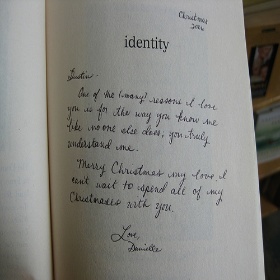 Christmas
2004
identity
Dustin -
One of the (many) reasons I love
you is for the way you know me
like no one else does; you truly
understand me.
Merry Christmas my love I
can't wait to spend all of my
Christmases with you.
Love,
Danielle